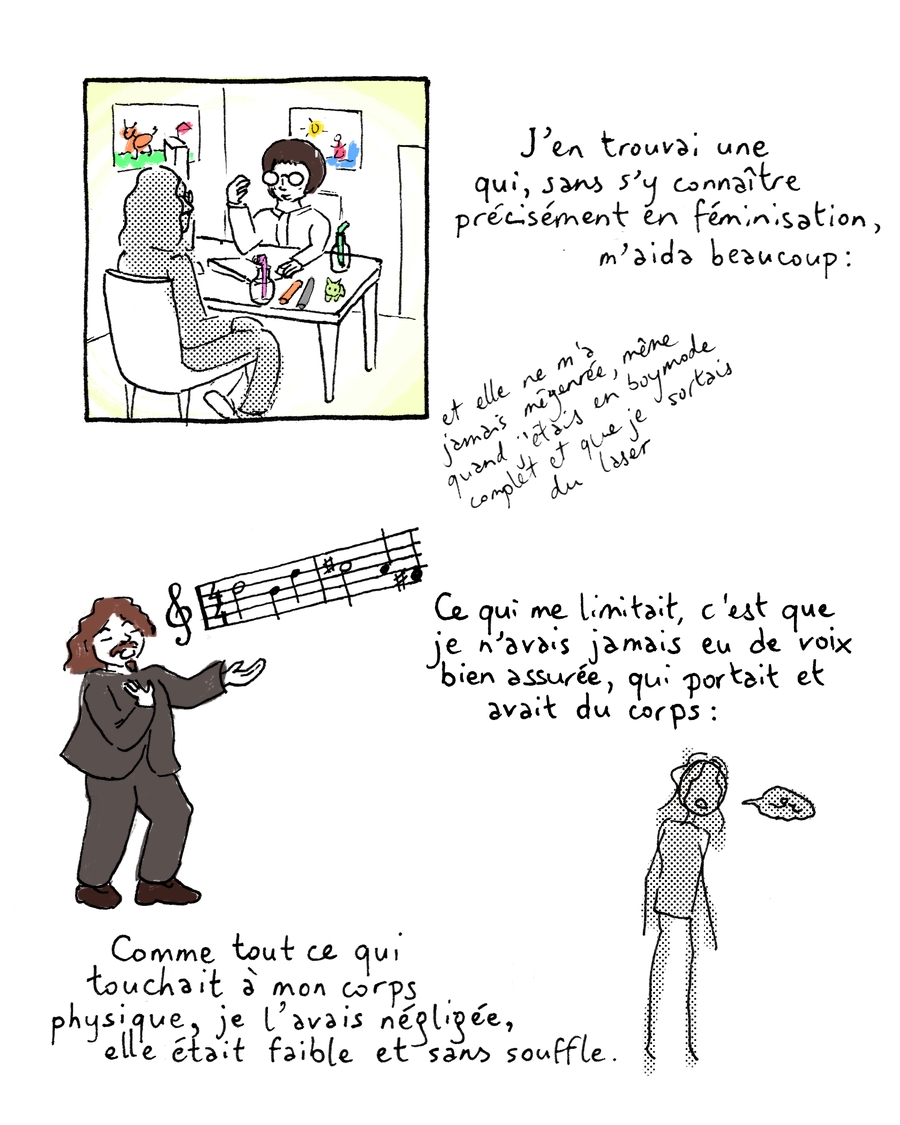 J'en trouvai une
qui, sans s'y connaître
précisément en féminisation,
m'aida beaucoup :
et elle ne m'a
jamais mégenrée, même
quand j'étais en boymode
complet et que je sortais
du laser
Ce qui me limitait, c'est que
je n'avais jamais eu de voix
bien assurée, qui portait et
avait du corps :
Comme tout ce qui
touchait à mon corps
physique, je l'avais négligée,
elle était faible et sans souffle.